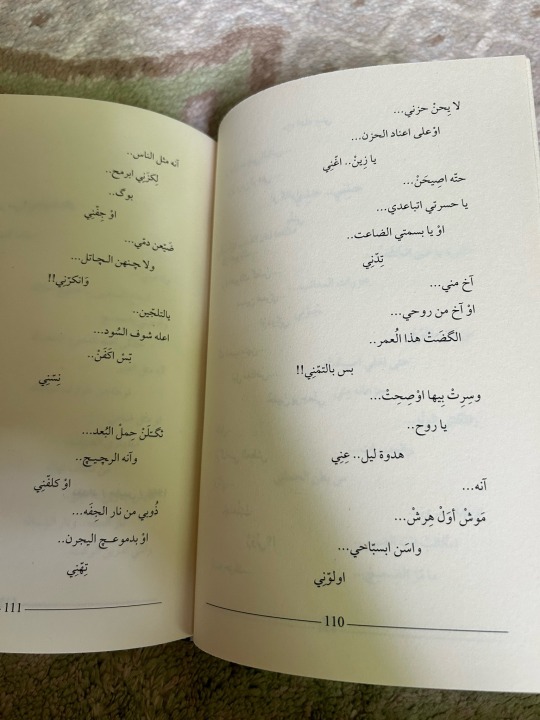 لا يِحنْ حزني...
اوْعلى اعناد الحزن...
يا زِينْ.. اغْنِي
حتّه اصِيحَنْ...
يا حسرتي اتباعدي...
اوْ يا بسمتي الضاعت..
تِدّنِي
آخ مني...
اوْ آخ من روحي...
الگضَتْ هذا الُعمر..
بس بالتمّنِي!!
وسِرِتْ بِيها اوْصِحِتْ...
يا روح..
هدوة ليل.. عِنِي
آنه...
مَوشْ أوَلْ هِرِشْ...
واسَن ابسبّاحي...
اولوّنِي
110
آنه مثل الناس..
لِكزَنِي ابرمح..
بوگ..
اوْ جِفْنِي
ضَيْعن دمّي...
ولا چنهن الچاتل...
وَانكرّنِي!!
يالتلجّين..
اعله شوف السُود...
بَسْ اكَفَنْ..
نِسّنِي
تگتلَنْ حِملْ البُعد...
وآنه الرچيچ..
اوْ كلفّنِي
ذُوبي من نار الجِفَه...
اوْ بدموعچ اليجرن..
تِهّنِي
111